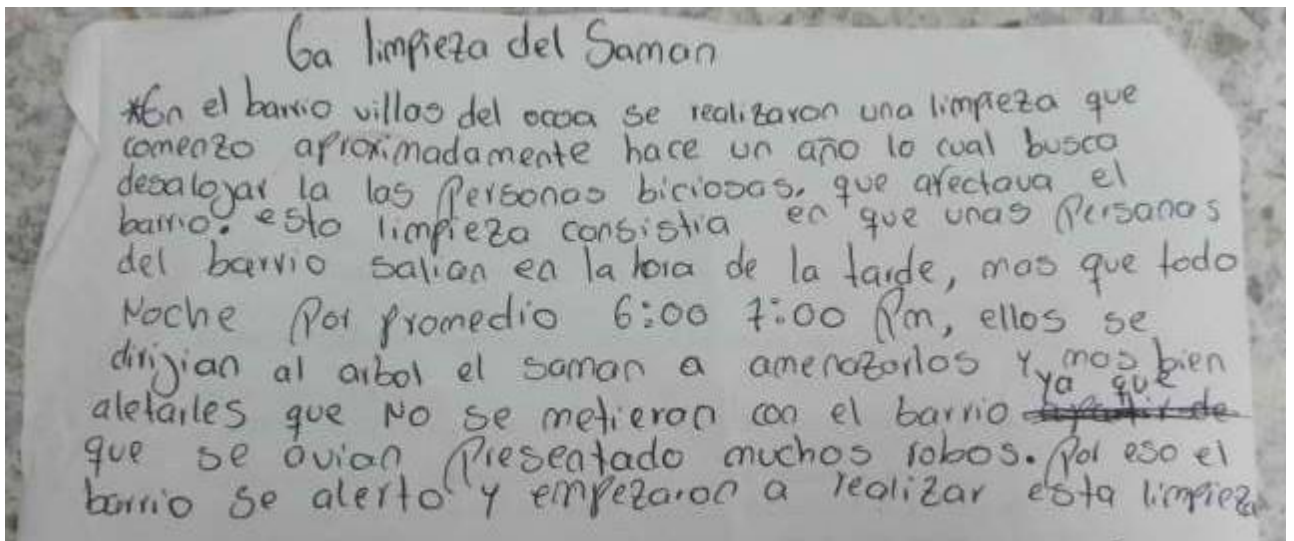 La limpieza del Saman
*En el barrio villas del ocoa se realizaron una limpieza que
comenzo aproximadamente hace un año lo cual busco
desalojar la las personas biciosas, que afectava el
barrio. esto limpieza consistia en que unas Personas
del barrio salian en la hora de la tarde, mas que todo
Noche Por promedio 6:00 7:00 Pm, ellos se
dirijian al arbol el saman a amenazarlos y mas bien
aletarles que No se metieron con el barrio ya que
que se avian Presentado muchos robos. Por eso el
barrio se alerto y empezaron a realizar esta limpieza